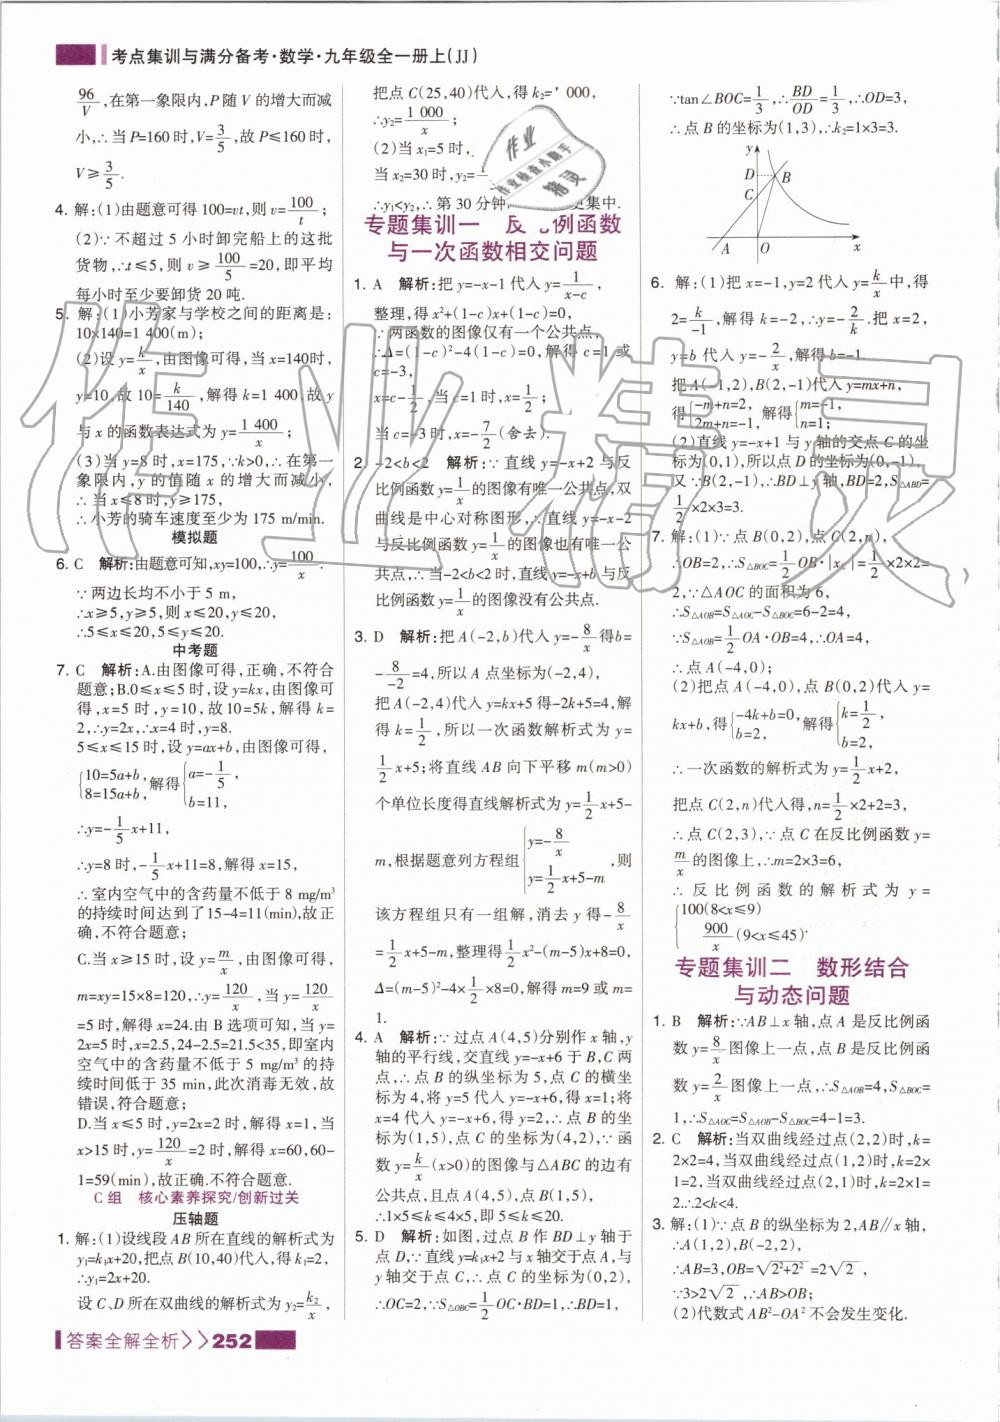 考点集训与满分备考·数学·九年级全一册上(JJ)
96/V,在第一象限内,P随V的增大而减
小,∴当P=160时,V=3/5,故P≤160时,
V≥3/5.
4. 解:(1)由题意可得100=vt,则v=100/t;
(2)∵不超过5小时卸完船上的这批
货物,∴t≤5,则v≥100/5=20,即平均
每小时至少要卸货20吨.
5. 解:(1)小芳家与学校之间的距离是:
10×140=1 400(m);
(2)设y=k/x,由图像可得,当x=140时,
y=10,故10=k/140,解得k=1 400,故y
与x的函数表达式为y=1 400/x;
(3)当y=8时,x=175,∵k>0,∴在第一
象限内,y的值随x的增大而减小,
∴当x≤8时,y≥175,
∴小芳的骑车速度至少为175 m/min.
模拟题
6. C 解析:由题意可知,xy=100,∴y=100/x.
∵两边长均不小于5 m,
∴x≥5,y≥5,则x≤20,y≤20,
∴5≤x≤20,5≤y≤20.
中考题
7. C 解析:A.由图像可得,正确,不符合
题意;B.0≤x≤5时,设y=kx,由图像可
得,x=5时,y=10,故10=5k,解得k=
2,∴y=2x,∴x=4时,y=8.
5≤x≤15时,设y=ax+b,由图像可得,
{10=5a+b, 8=15a+b, 解得{a=-1/5, b=11,
∴y=-1/5x+11,
∴y=8时,-1/5x+11=8,解得x=15,
∴室内空气中的含药量不低于8 mg/m³
的持续时间达到了15-4=11(min),故正
确,不符合题意;
C.当x≥15时,设y=m/x,由图像可得,
m=xy=15×8=120,∴y=120/x,当y=120/x
=5时,解得x=24.由B选项可知,当y=
2x=5时,x=2.5,24-2.5=21.5<35,即室内
空气中的含药量不低于5 mg/m³的持
续时间低于35 min,此次消毒无效,故
错误,符合题意;
D.当x≤5时,y=2x=2,解得x=1,当
x>15时,y=120/x=2时,解得x=60,60-
1=59(min),故正确.不符合题意.
C组 核心素养探究/创新过关
压轴题
1. 解:(1)设线段AB所在直线的解析式为
y₁=k₁x+20,把点B(10,40)代入,得k₁=2,
∴y₁=2x+20.
设C、D所在双曲线的解析式为y₂=k₂/x,
把点C(25,40)代入,得k₂= 000,
∴y₂=1 000/x;
(2)当x₁=5时,
当x₂=30时,y₂=
∴y₁<y₂,∴第30分钟 集中.
专题集训一 反 例函数
与一次函数相交问题
1. A 解析:把y=-x-1代入y=1/(x-c),
整理,得x²+(1-c)x+(1-c)=0,
∵两函数的图像仅有一个公共点,
∴Δ=(1-c)²-4(1-c)=0,解得c=1或
c=-3,
x=c-1/2,当c=1时,x=1/2;
当c=-3时,x=-7/2(舍去).
2. -2<b<2 解析:∵直线y=-x+2与反
比例函数y=1/x的图像有唯一公共点,双
曲线是中心对称图形,∴直线y=-x-2
与反比例函数y=1/x的图像也有唯一公
共点,∴当-2<b<2时,直线y=-x+b与反
比例函数y=1/x的图像没有公共点.
3. D 解析:把A(-2,b)代入y=-8/x得b=
-8/-2=4,所以A点坐标为(-2,4),
把A(-2,4)代入y=kx+5得-2k+5=4,解
得k=1/2,所以一次函数解析式为y=
1/2x+5;将直线AB向下平移m(m>0)
个单位长度得直线解析式为y=1/2x+5-
m,根据题意列方程组{y=-8/x y=1/2x+5-m,则
该方程组只有一组解,消去y得-8/x
=1/2x+5-m,整理得1/2x²-(m-5)x+8=0,
Δ=(m-5)²-4×1/2×8=0,解得m=9或m=
1.
4. A 解析:∵过点A(4,5)分别作x轴,y
轴的平行线,交直线y=-x+6于B,C两
点,∴点B的纵坐标为5,点C的横坐
标为4,将y=5代入y=-x+6,得x=1;将
x=4代入y=-x+6,得y=2,∴点B的坐
标为(1,5),点C的坐标为(4,2),∵函
数y=k/x(x>0)的图像与△ABC的边有
公共点,且点A(4,5),点B(1,5),
∴1×5≤k≤4×5,即5≤k≤20.
5. D 解析:如图,过点B作BD⊥y轴于
点D,∵直线y=k₁x+2与x轴交于点A,与
y轴交于点C,∴点C的坐标为(0,2),
∴OC=2,∵S△OBC=1/2OC·BD=1,∴BD=1,
∵tan∠BOC=1/3,∴BD/OD=1/3,∴OD=3,
∴点B的坐标为(1,3),∴k₂=1×3=3.
y
D B
C
A O x
6. 解:(1)把x=-1,y=2代入y=k/x中,得
2=k/-1,解得k=-2,∴y=-2/k.把x=2,
y=b代入y=-2/x,解得b=-1.
把A(-1,2),B(2,-1)代入y=mx+n,
得{-m+n=2, 2m+n=-1, 解得{m=-1, n=1;
(2)直线y=-x+1与y轴的交点C的坐
标为(0,1),所以点D的坐标为(0,-1),
又∵B(2,-1),∴BD⊥y轴,BD=2,S△ABD=
1/2×2×3=3.
7. 解:(1)∵点B(0,2),点C(2,n),
∴OB=2,∴S△BOC=1/2OB·|xC|=1/2×2×2=
2,∵△AOC的面积为6,
∴S△AOB=S△AOC-S△BOC=6-2=4,
∵S△AOB=1/2OA·OB=4,∴OA=4,
∴点A(-4,0);
(2)把点A(-4,0),点B(0,2)代入y=
kx+b,得{-4k+b=0, b=2, 解得{k=1/2, b=2,
∴一次函数的解析式为y=1/2x+2,
把点C(2,n)代入得,n=1/2×2+2=3,
∴点C(2,3),∵点C在反比例函数y=
m/x的图像上,∴m=2×3=6,
∴反比例函数的解析式为y=
{100(8<x≤9) 900/x(9<x≤45).
专题集训二 数形结合
与动态问题
1. B 解析:∵AB⊥x轴,点A是反比例函
数y=8/x图像上一点,点B是反比例函
数y=2/x图像上一点,∴S△AOB=4,S△BOC=
1,∴S△AOC=S△AOB-S△BOC=4-1=3.
2. C 解析:当双曲线经过点(2,2)时,k=
2×2=4,当双曲线经过点(1,2)时,k=2×
1=2,当双曲线经过点(2,1)时,k=2×1=
2.∴2<k<4.
3. 解:(1)∵点B的纵坐标为2,AB∥x轴,
∴A(1,2),B(-2,2),
∴AB=3,OB=√2²+2²=2√2,
∵3>2√2,∴AB>OB;
(2)代数式AB²-OA²不会发生变化.
答案全解全析>>252
作业精灵
作业
作业检查小助手
精灵